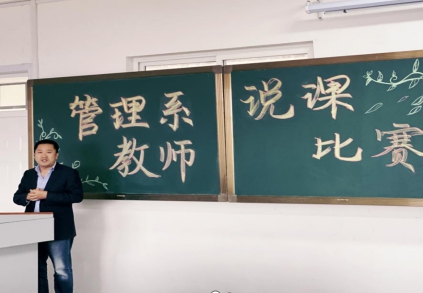 管理系
教师
说课
比赛